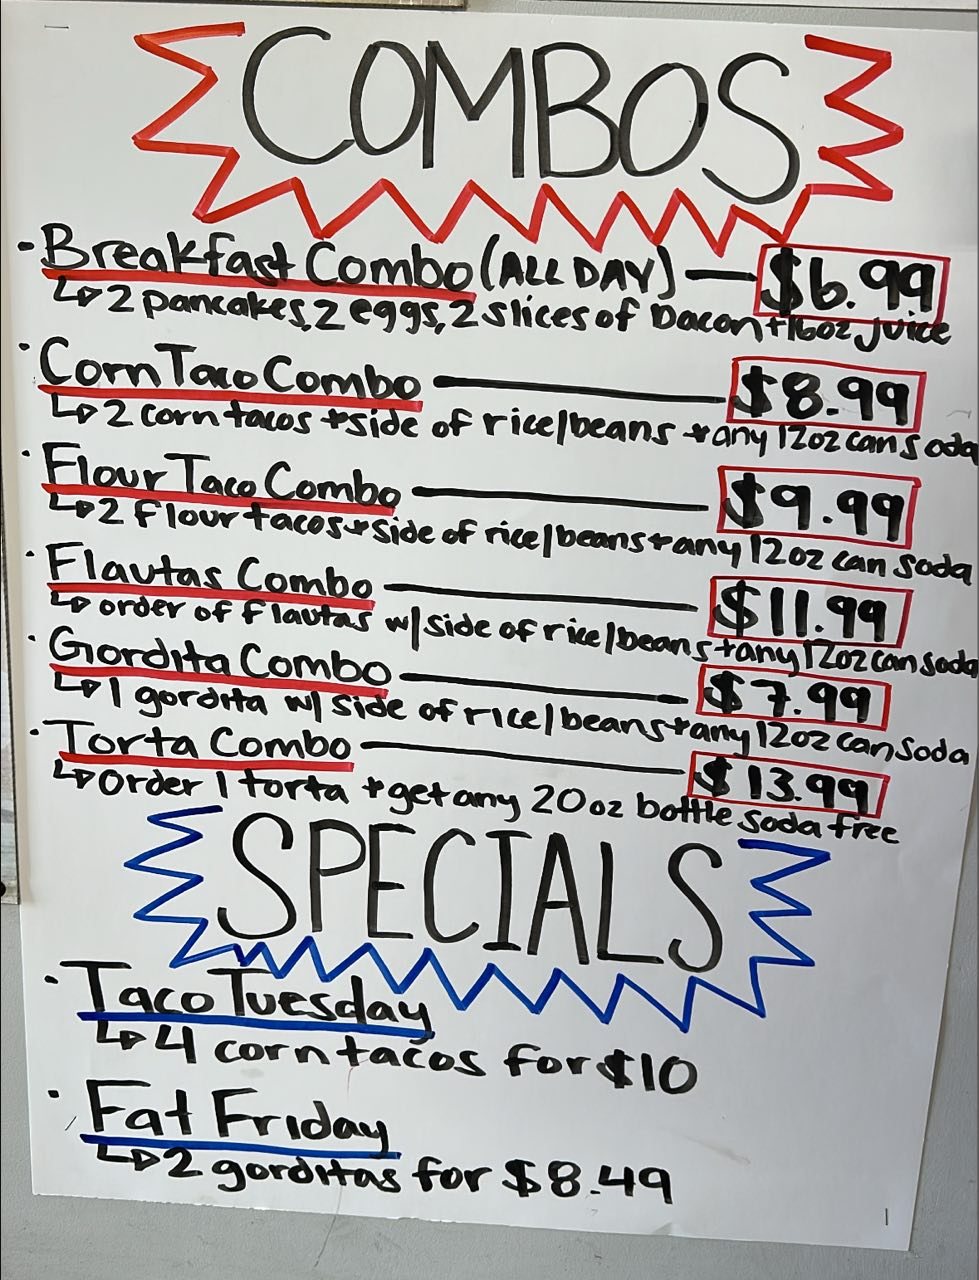 COMBOS
· Breakfast Combo (ALL DAY) — $6.99
↳ 2 pancakes, 2 eggs, 2 slices of bacon + 16oz juice
· Corn Taco Combo — $8.99
↳ 2 corn tacos + side of rice/beans + any 12oz can soda
· Flour Taco Combo — $9.99
↳ 2 flour tacos + side of rice/beans + any 12oz can soda
· Flautas Combo — $11.99
↳ order of flautas w/ side of rice/beans + any 12oz can soda
· Gordita Combo — $7.99
↳ 1 gordita w/ side of rice/beans + any 12oz can soda
· Torta Combo — $13.99
↳ Order 1 torta + get any 20oz bottle soda free
SPECIALS
· Taco Tuesday
↳ 4 corn tacos for $10
· Fat Friday
↳ 2 gorditas for $8.49